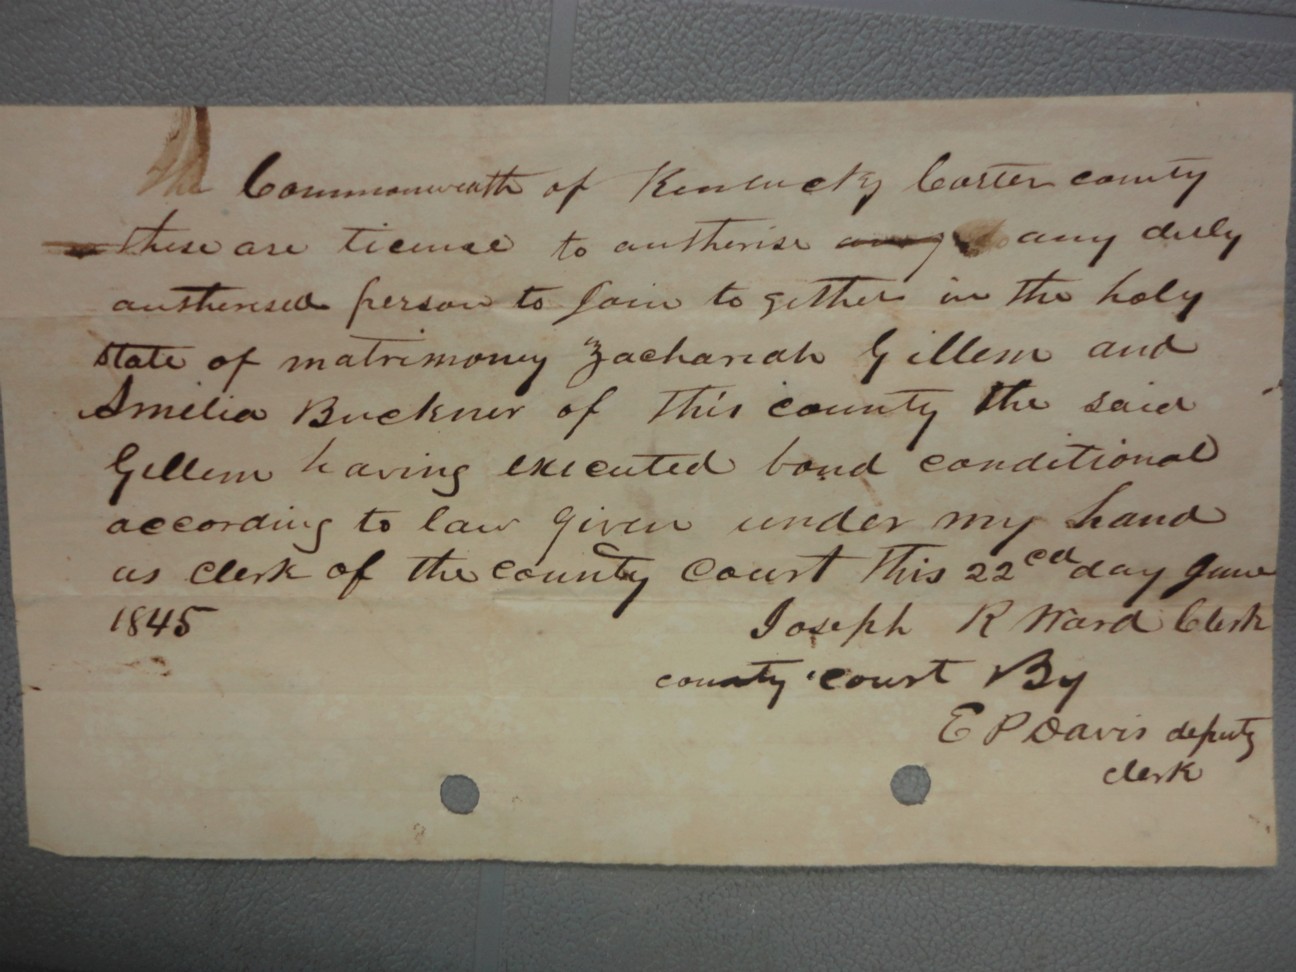 The Commonwealth of Kentucky Carter county
these are licence to autherise any duly
autherised person to Join to gether in the holy
state of matrimony Zachariah Gillem and
Amelia Buckner of this county the said
Gillem having executed bond conditional
according to law given under my hand
as clerk of the county court this 22cd day June
1845 Joseph R Ward Clerk
county court By
E P Davis deputy
clerk